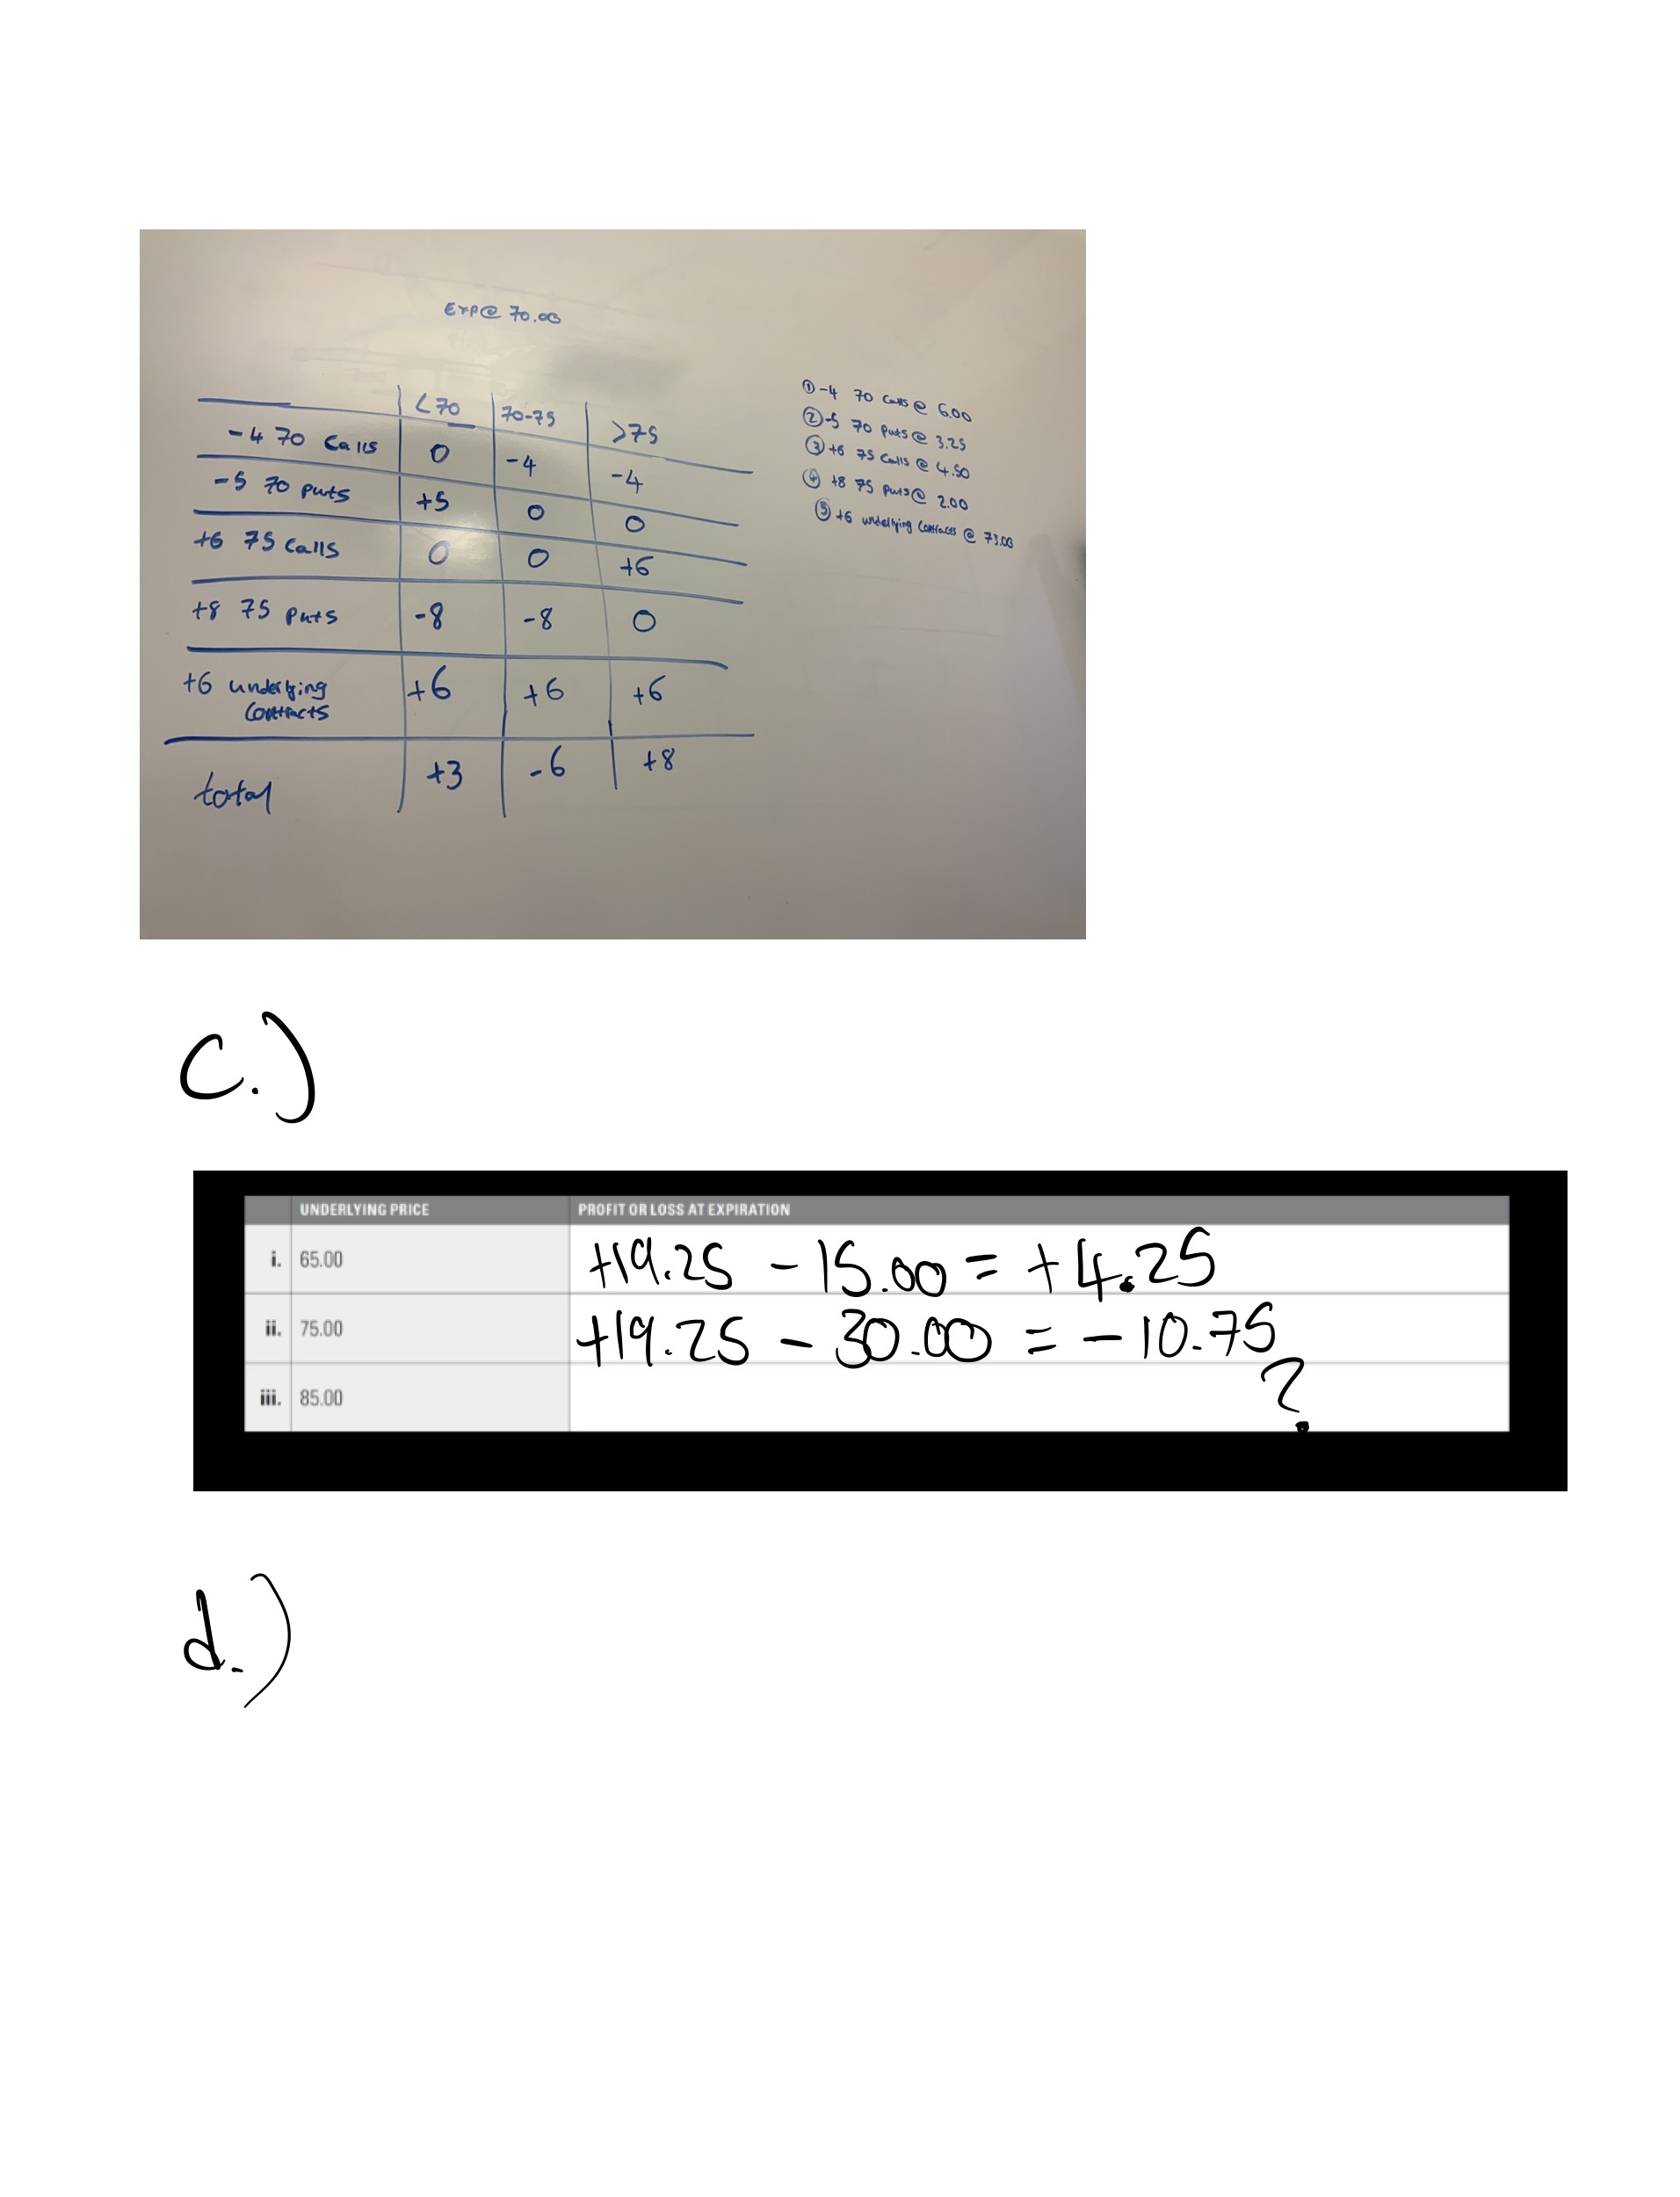 Exp@ 70.00
<70 70-75 >75
-4 70 Calls 0 -4 -4
-5 70 puts +5 0 0
+6 75 Calls 0 0 +6
+8 75 puts -8 -8 0
+6 underlying +6 +6 +6
Contracts
total +3 -6 +8
① -4 70 Calls @ 6.00
② -5 70 puts @ 3.25
③ +6 75 Calls @ 4.50
④ +8 75 puts @ 2.00
⑤ +6 underlying Contracts @ 73.00
C.)
UNDERLYING PRICE PROFIT OR LOSS AT EXPIRATION
i. 65.00 +19.25 - 15.00 = +4.25
ii. 75.00 +19.25 - 30.00 = -10.75
iii. 85.00 ?
d.)